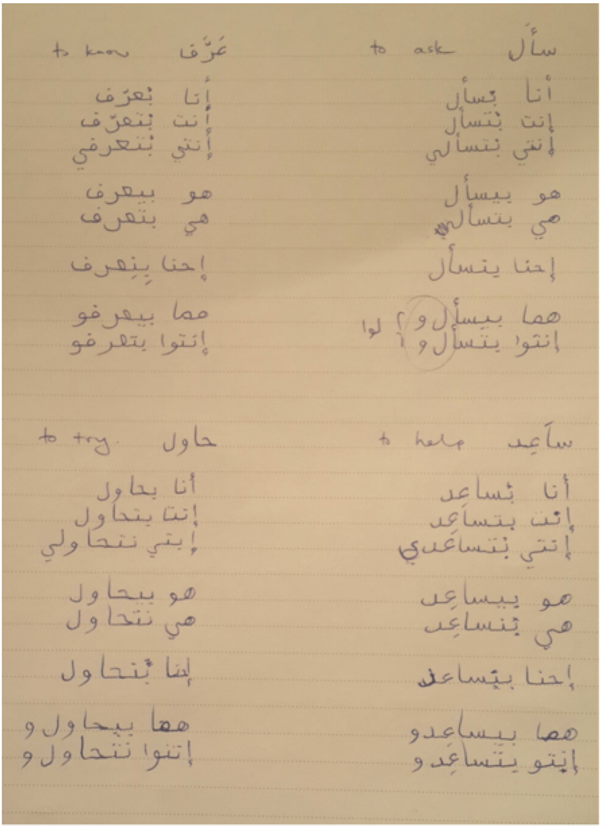 سأل to ask
أنا بَسأل
إنت بتسأل
إنتي بتسألي
هو بيسأل
هي بتسأل
إحنا بنسأل
هما بيسألو
إنتوا بتسألو
لوا ؟
عَرَّف to know
أنا بَعرّف
أنت بتعرّف
أنتي بتعرفي
هو بيعرف
هي بتعرف
إحنا بِنِعرف
هما بيعرفو
إنتوا بتعرفو
ساَعِد to help
أنا بَساعِد
إنت بتساعِد
إنتي بتساعدي
هو بيساعِد
هي بتساعِد
إحنا بيساعد
هما بيساعدو
إنتو بتساعِدو
حاول to try.
أنا بحاول
إنت بتحاول
إنتي نتحاولي
هو بيحاول
هي نتحاول
بَنحاول
هما بيحاولو
إنتوا نتحاولو